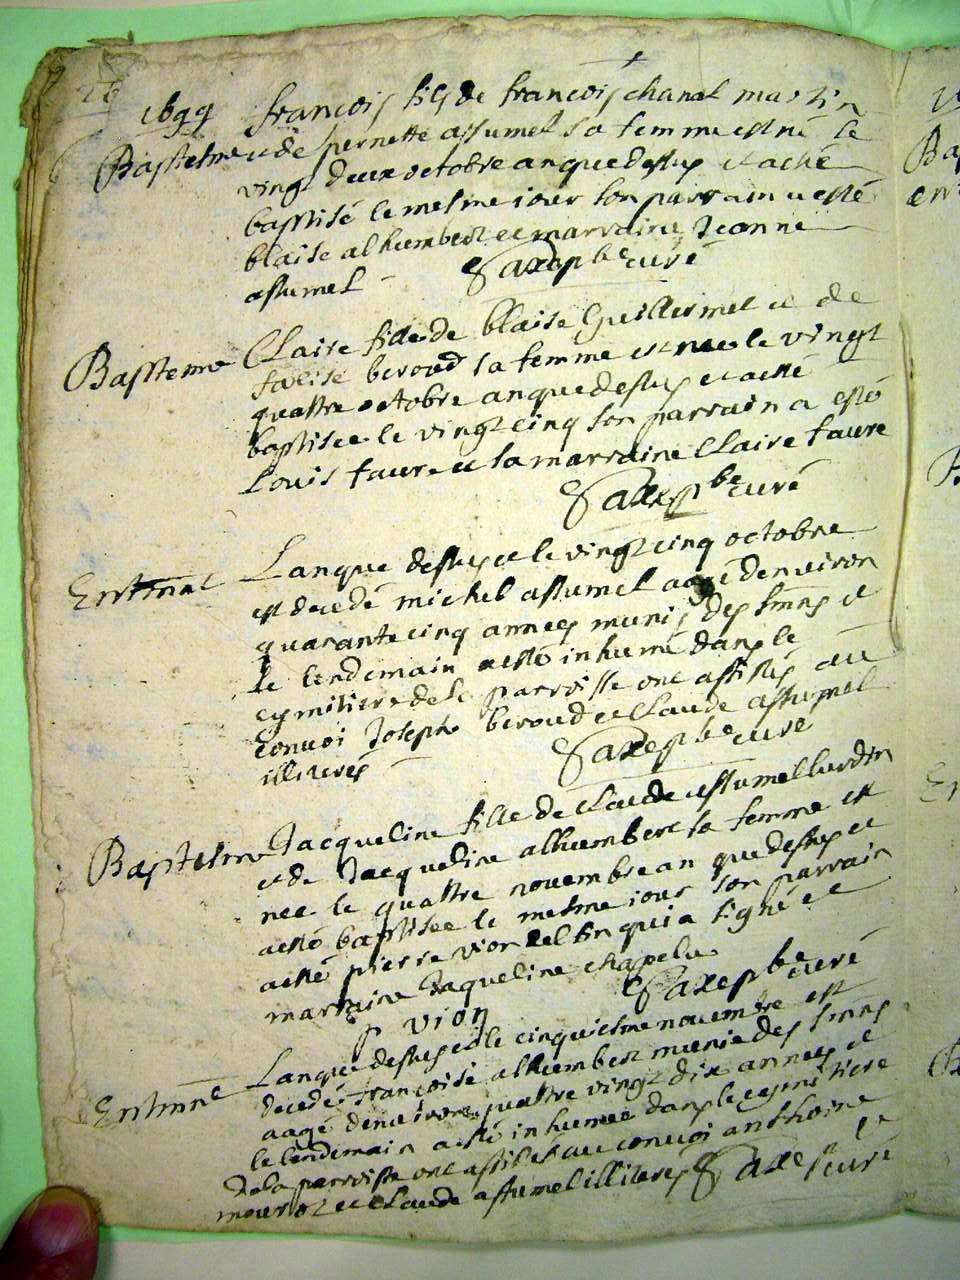 1699 françois fils de françois chanal martin
Baptesme et de pernette assumel sa femme est né le
vingt deux octobre an que dessus et a esté
baptisé le mesme iour son parrain a esté
blaise alhumbert et marraine Jeanne
assumel curé
Baptesme Claire fille de blaise Guillermet et de
beroud sa femme est nee le vingt
quattre octobre an que dessus et a esté
baptisee le vingt cinq son parrain a esté
Louis faure et sa marraine Claire faure
curé
L'an que dessus et le vingt cinq octobre
est decedé michel assumel aagé denviron
quarante cinq annees munis des smns et
le lendemain a esté inhumé dans le
cymitiere de la parroisse ont assistés au
convoi Joseph beroud et Claude assumel
illiterés curé
Baptesme Jacqueline fille de Claude assumel
et de Jacqueline alhumbert sa femme est
nee le quattre novembre an que dessus et
a esté baptisee le mesme iour son parrain
a esté pierre vion qui a signé et
marraine Jaqueline chapelu
p vion curé
L'an que dessus et le cinquiesme novembre est
decedé françoise alhumbert munie des smns
aagé denviron quattre vingt dix annees et
le lendemain a esté inhumee dans le cymitiere
de la parroisse ont assistés au convoi anthoine
et Claude assumel illiterés curé